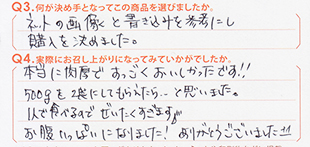 Q3.何が決め手となってこの商品を選びましたか。
ネットの画像と書き込みを参考にし
購入を決めました。
Q4.実際にお召し上がりになってみていかがでしたか。
本当に肉厚ですっごくおいしかったです!!
500gを2袋にしてもらえたら…と思いました。
1人で食べるのでぜいたくすぎますが
お腹いっぱいになりました! ありがとうございました